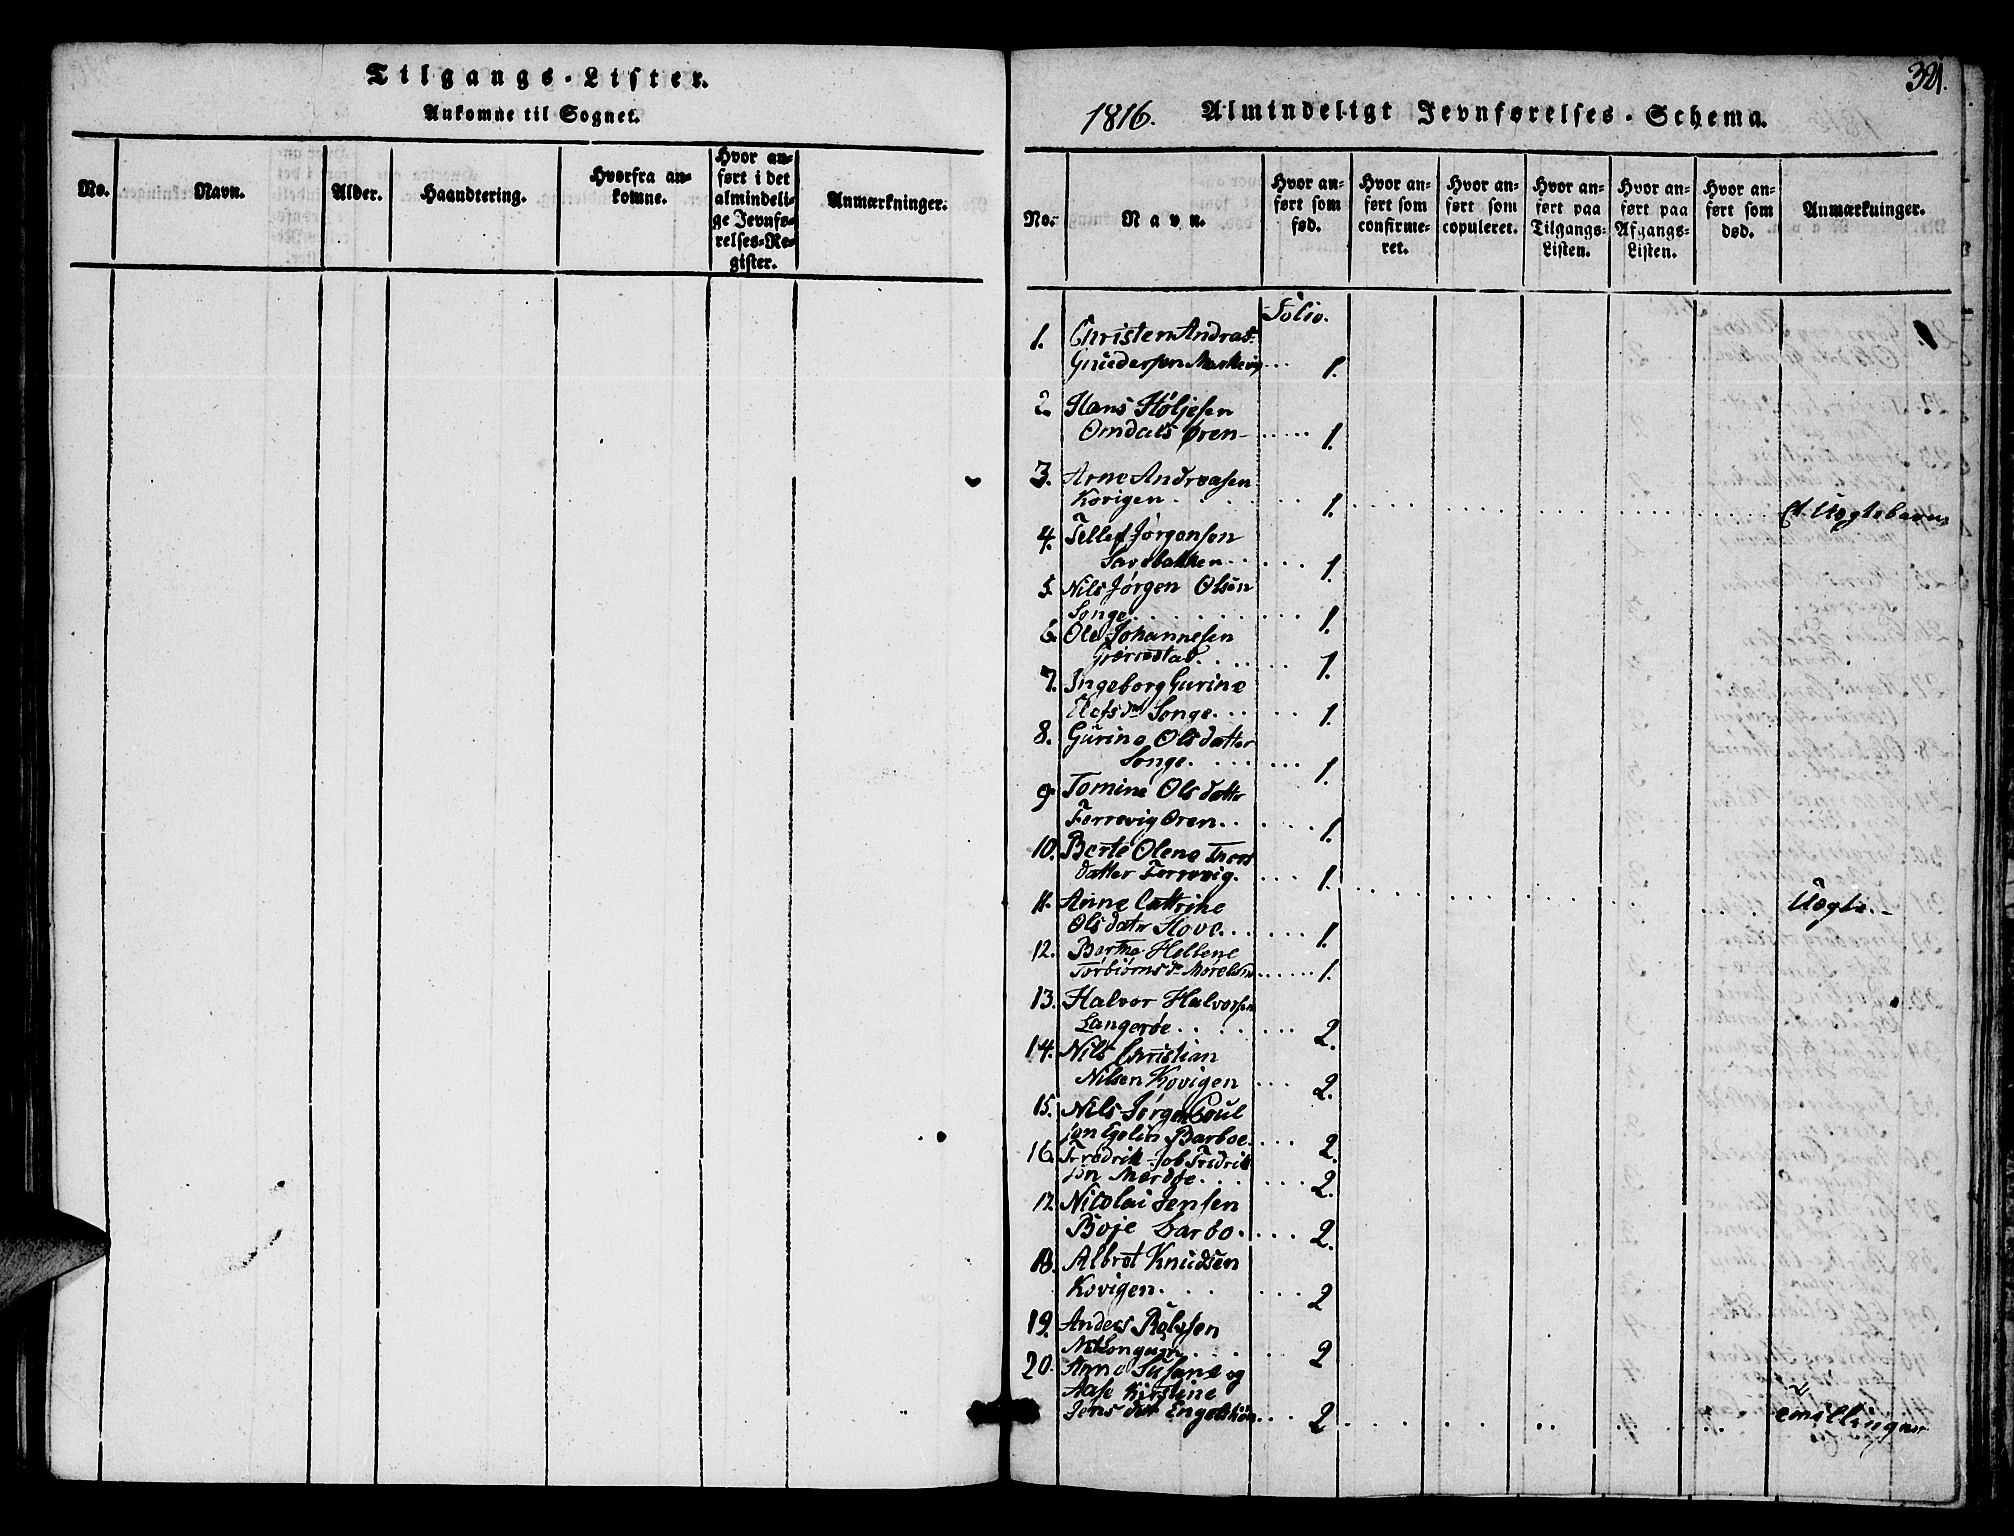 Tilgangs-Lister.
Ankomne til Sognet.
No.
Navn.
Alder.
Haandtering.
Hvorfra an-
komne.
Hvor an-
ført i det
almindeli-
ge Jevnfø-
relses-Re-
gister.
Anmærkninger.
321.
1816. Almindeligt Jevnførelses-Schema.
No.
Navn.
Hvor an-
ført som
fød.
Hvor an-
ført som
confirme-
ret.
Hvor an-
ført som
copuleret.
Hvor an-
ført paa
Tilgangs-
Listen.
Hvor an-
ført paa
Afgangs-
Listen.
Hvor an-
ført som
død.
Anmærkninger.
Folio.
1. Christen Andreas
1.
2. Hans Høljesen
Omdals Øren 1.
3. Arne Andreasen
Kovigen 1. Et Uægtebarn
4. Tellef Jørgensen
1.
5. Nils Jørgen Olsen
Songe 1.
6. Ole Johannesen
1.
7. Ingeborg Gurine
Songe 1.
8. Gurine Olsdatter
Songe 1.
9. Tomine Olsdatter
Færrevig Øren 1.
10. Berte Olene
datter Færrevig 1.
11. Anne Cattrine Uægte
Olsdatr Hove 1.
12. Berthe Hellene
1.
13. Halvor Halvorsen
Langerøe 2.
14. Nils Christian
Nilsen Kovigen 2.
15. Nils Jørgen Poul
Barboe 2.
16. Fredrik Job Fredrik
søn Merdøe 2.
17. Nicolai Jensen
Boje Barbo 2.
18. Albret Knudsen
Kovigen 2
19. Anders
2
20. Anne Susane og
Aase Kirstine
Jens dtr 2 tvillinger